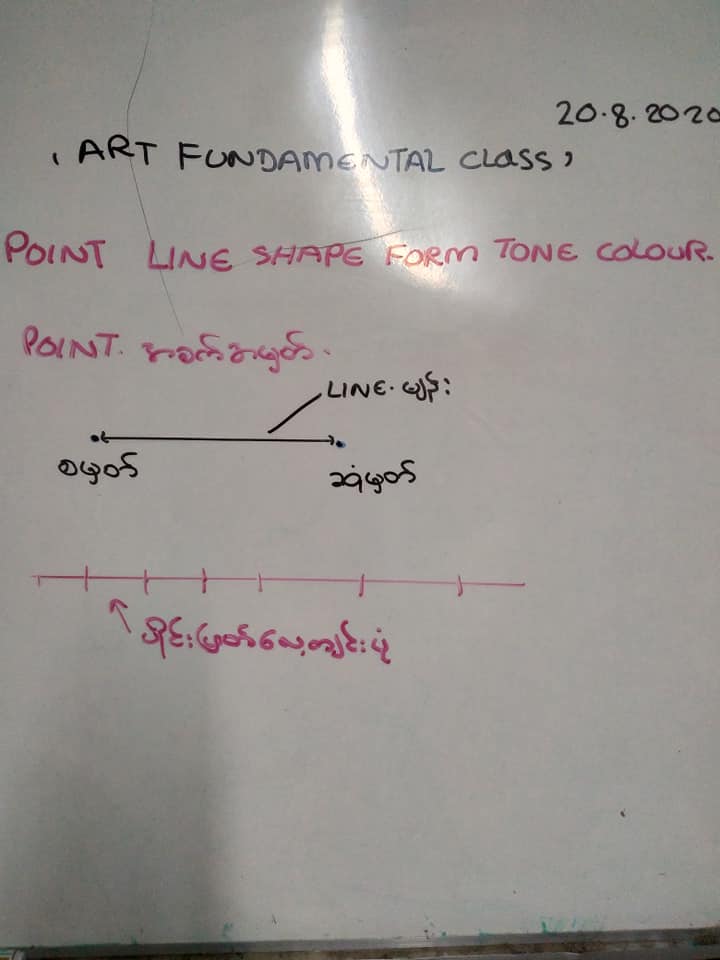 20.8.2020
‘ ART FUNDAMENTAL CLASS ’
POINT LINE SHAPE FORM TONE COLOUR.
POINT. အစက်အမှတ်.
LINE. မျဉ်း
စမှတ် ဆုံမှတ်
ပိုင်းဖြတ်လေ့ကျင့်ပုံ